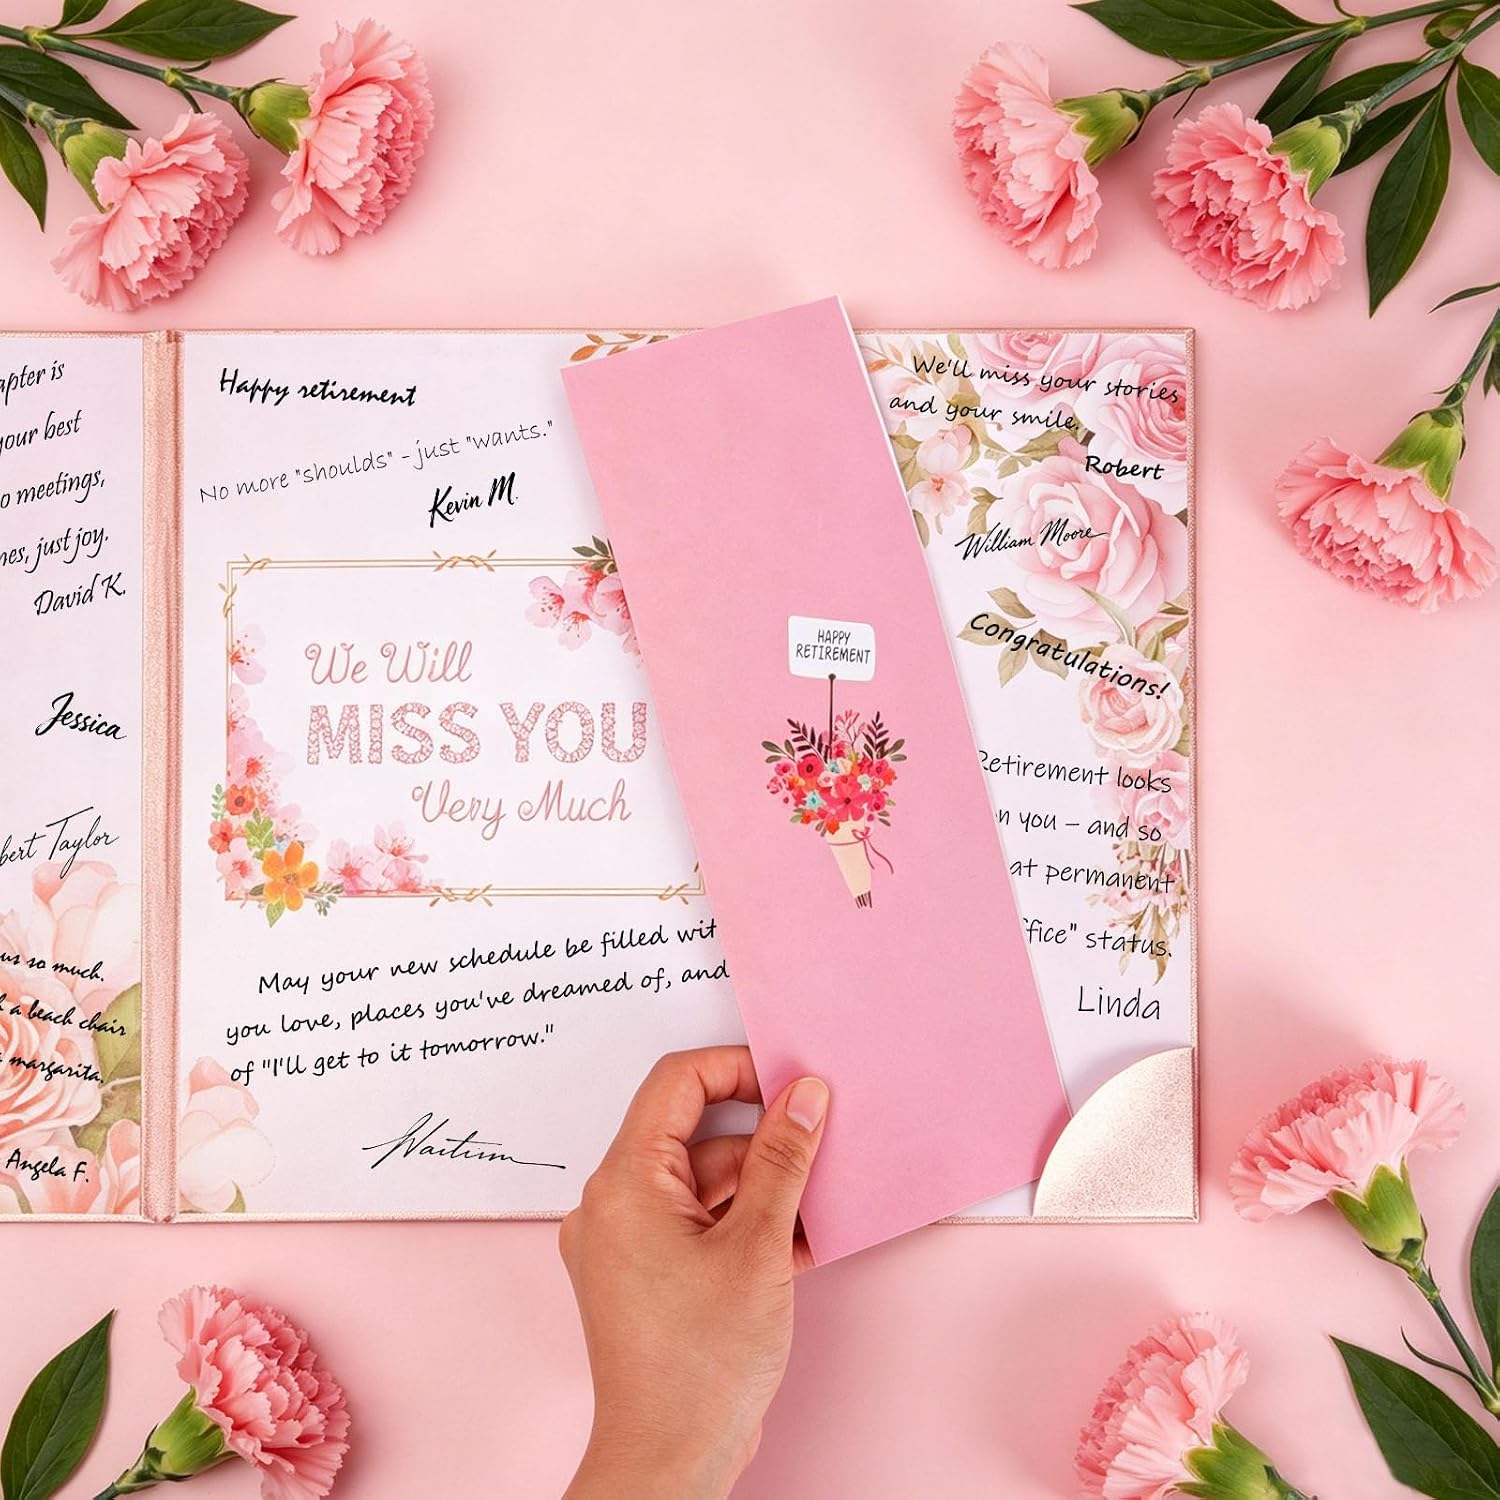 apter is
your best
o meetings,
nes, just joy.
David K.
Jessica
bert Taylor
us so much.
a beach chair
margarita.
Angela F.
Happy retirement
No more "shoulds" - just "wants."
Kevin M.
We Will
MISS YOU
Very Much
May your new schedule be filled wit
you love, places you've dreamed of, and
of "I'll get to it tomorrow."
HAPPY
RETIREMENT
We'll miss your stories
and your smile.
Robert
William Moore
Congratulations!
Retirement looks
n you – and so
at permanent
ffice" status.
Linda